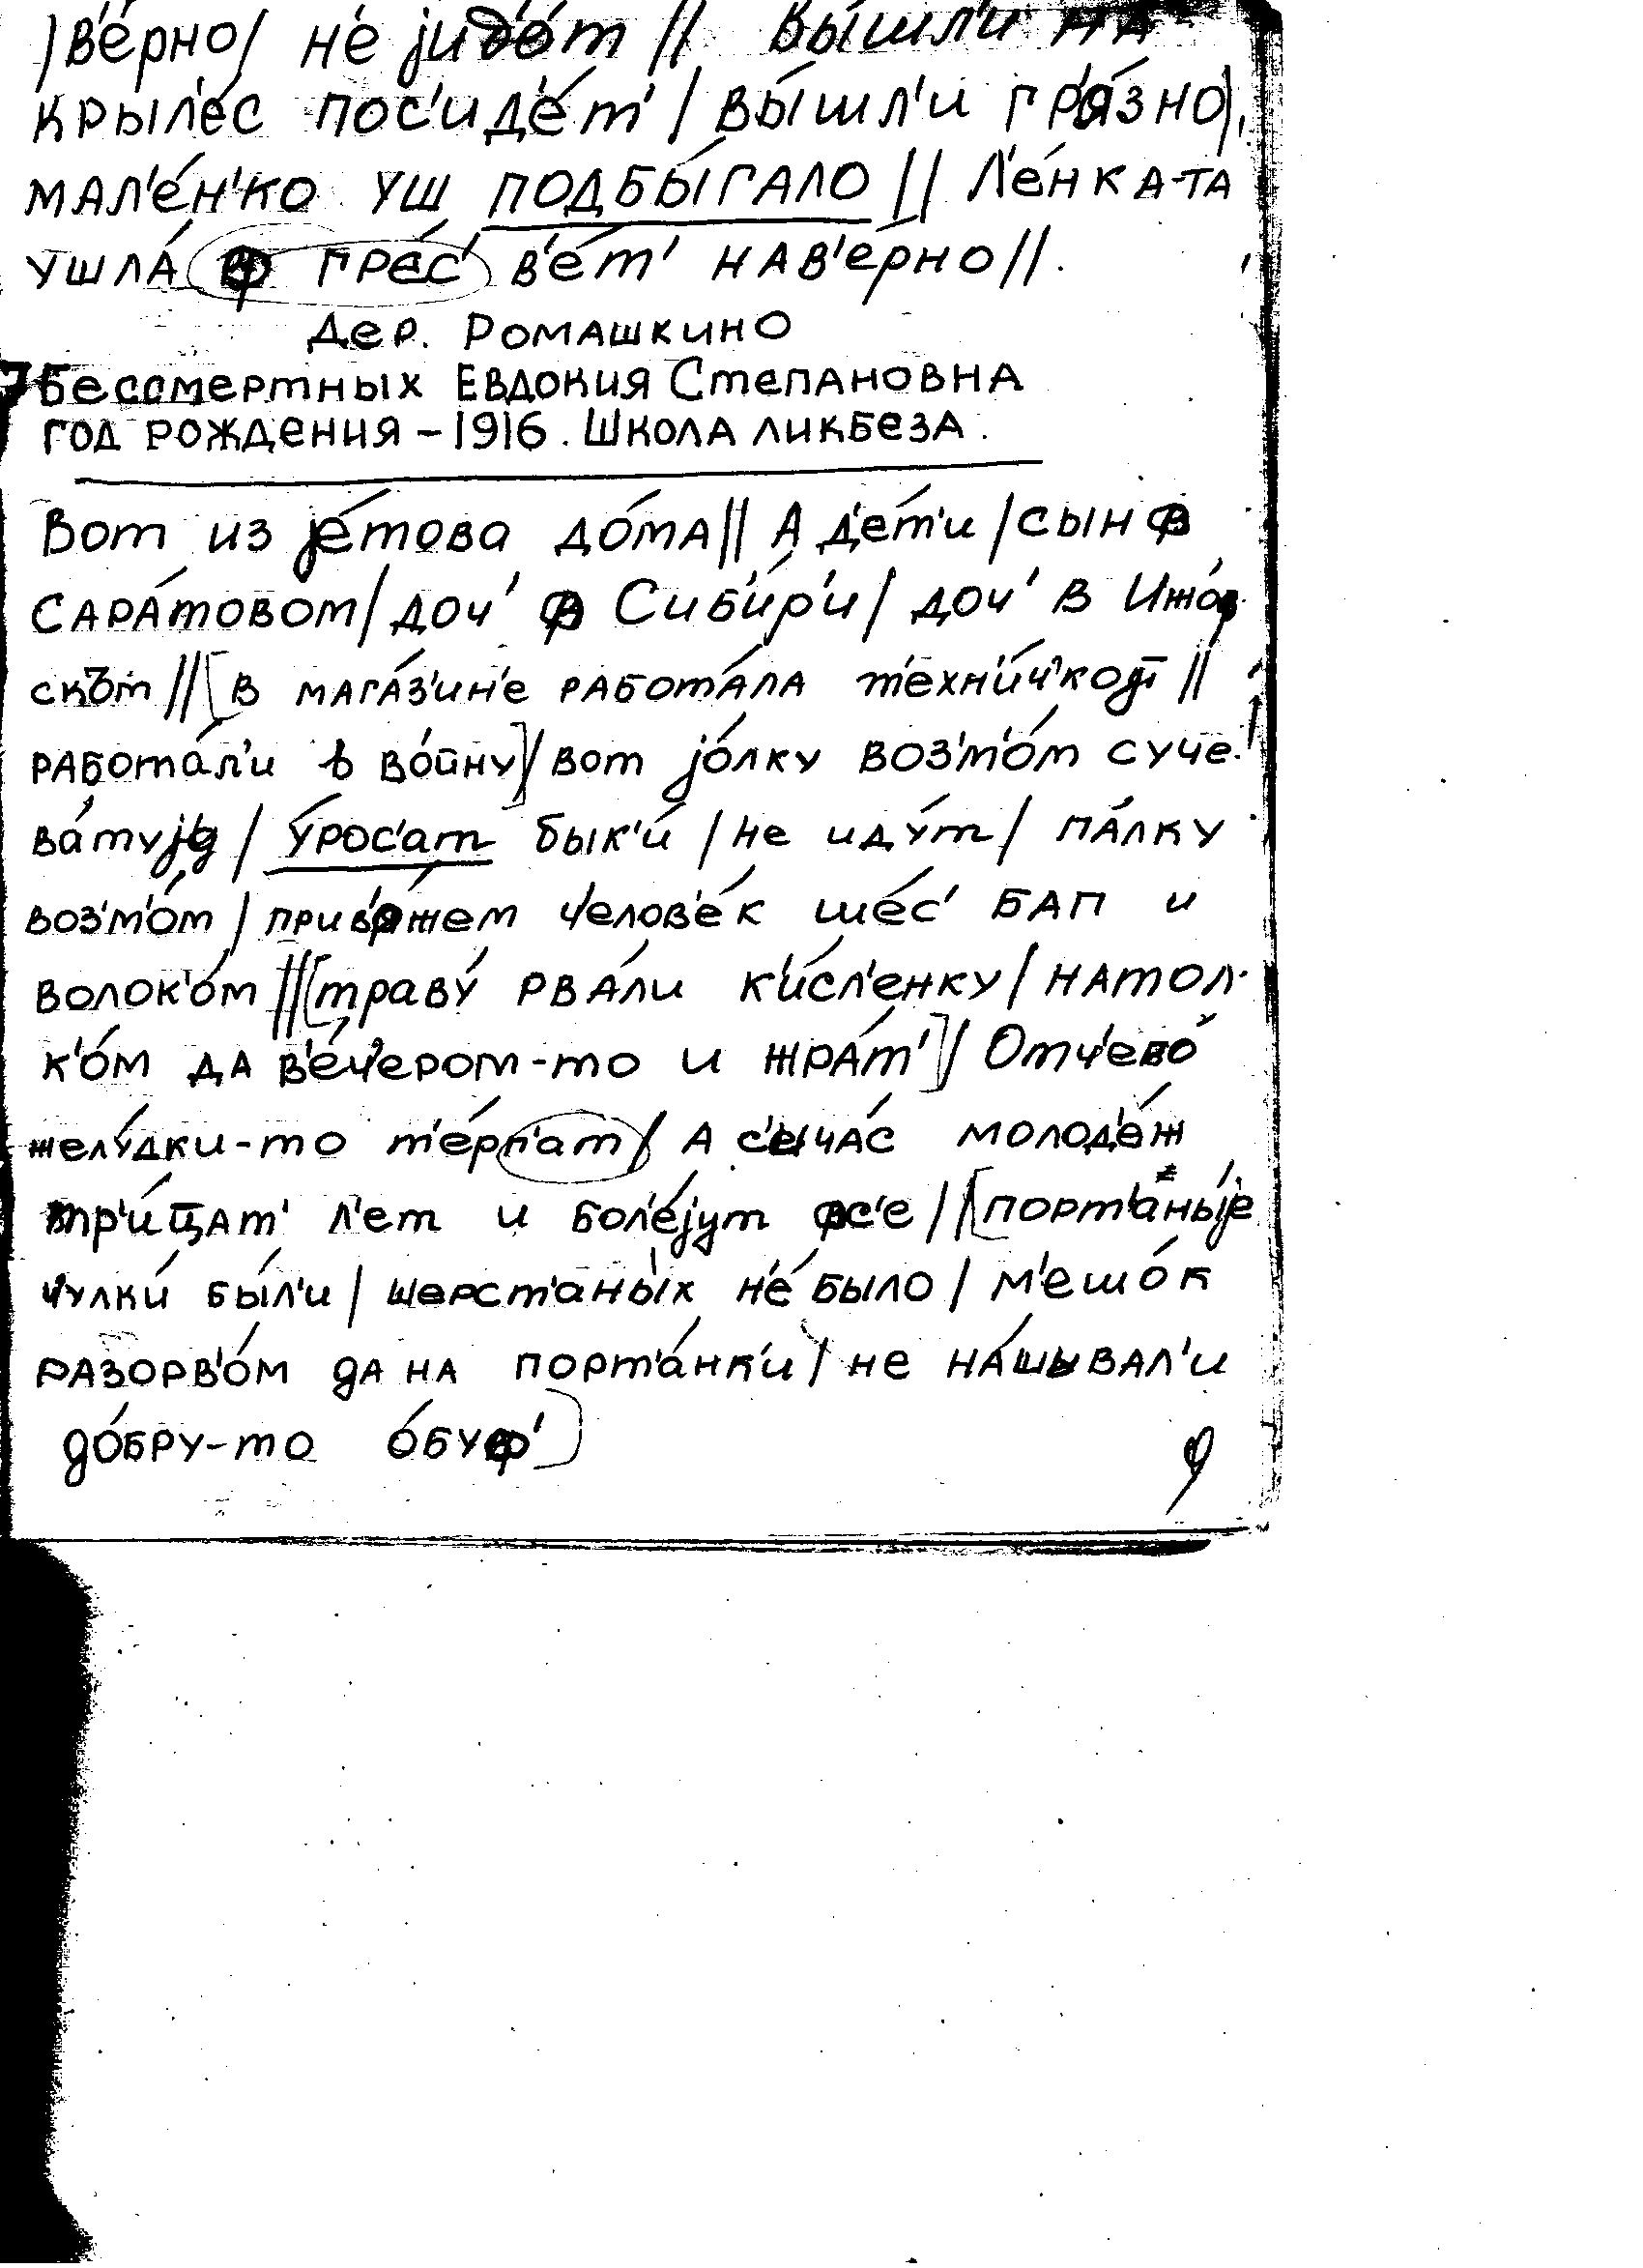 /в'е́рно/ н'е jид'о́т // вы́шл'и на
крыл'е́с пос'ид'е́т' / вы́шл'и гр'а́зно/,
мал'е́н'ко уш подбы́гало // Л'е́нка-та
ушла́ ф гр'ес' в'ет' нав'е́рно //.
Дер. Ромашкино
Бессмертных Евдокия Степановна
год рождения – 1916. Школа ликбеза.
Вот из jе́това до́ма // А д'е́т'и / сын ф
Сара́товом / доч' ф Сиб'и́р'и / доч' в Ижо́ф
скъм // [в мага́з'ин'е рабо́тала т'ехн'и́ч'кой //
рабо́тал'и в во́йну] / вот jо́лку воз'м'о́м суче-
ва́туjу / у́рос'ат бык'и́ / не иду́т / па́лку
воз'м'о́м / прив'а́жем ч'елов'е́к шес' бап и
волок'о́м // [траву́ рва́ли к'и́сл'енку / натол-
к'о́м да в'е́ч'ером-то и жра́т'] / Отч'ево́
желу́дки-то т'е́рп'ат / А с'ыча́с молод'о́ж
тр'и́цат' л'ет и бол'е́jут фс'е // [порт'аны́jе
ч'улки́ бы́л'и / шерст'аны́х н'е́ было / м'ешо́к
разорв'о́м да на порт'а́нк'и / не на́шывал'и
до́бру-то о́буф']
9